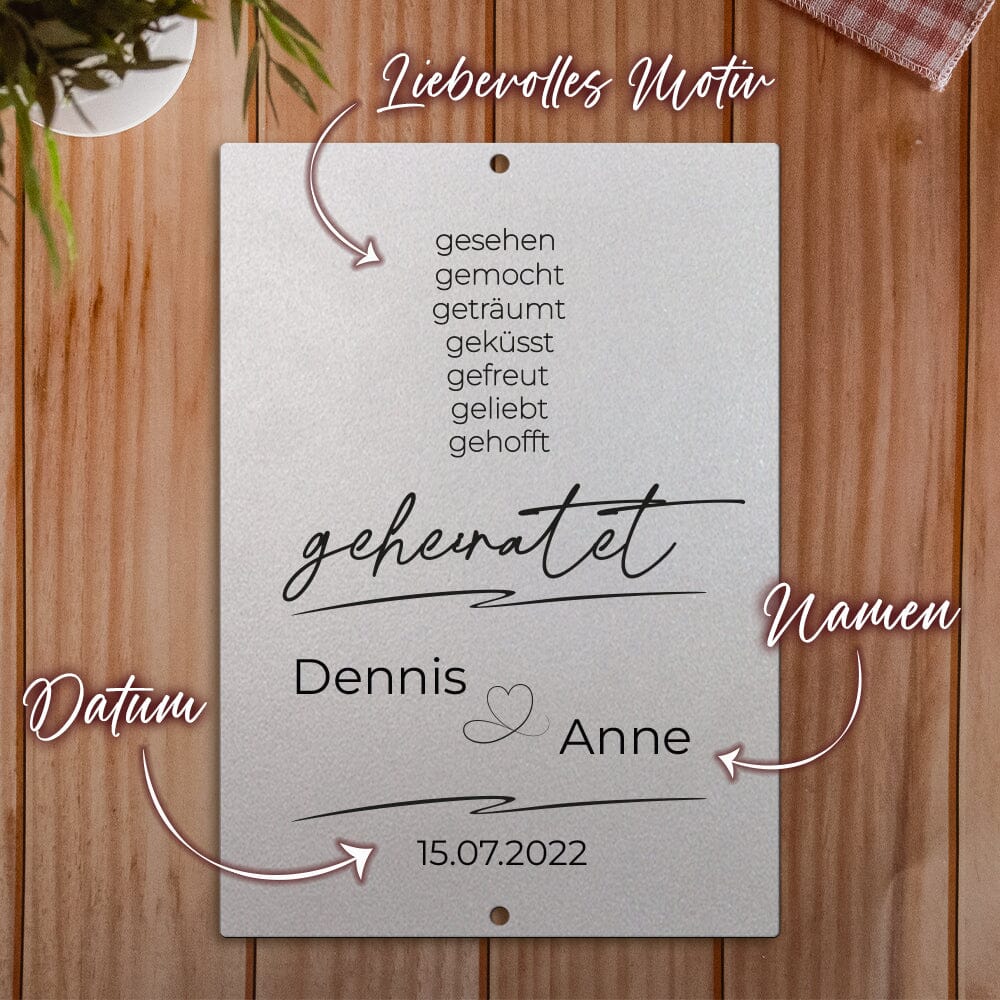 Liebevolles Motiv
gesehen
gemocht
geträumt
geküsst
gefreut
geliebt
gehofft
geheiratet
Namen
Dennis
Datum
Anne
15.07.2022